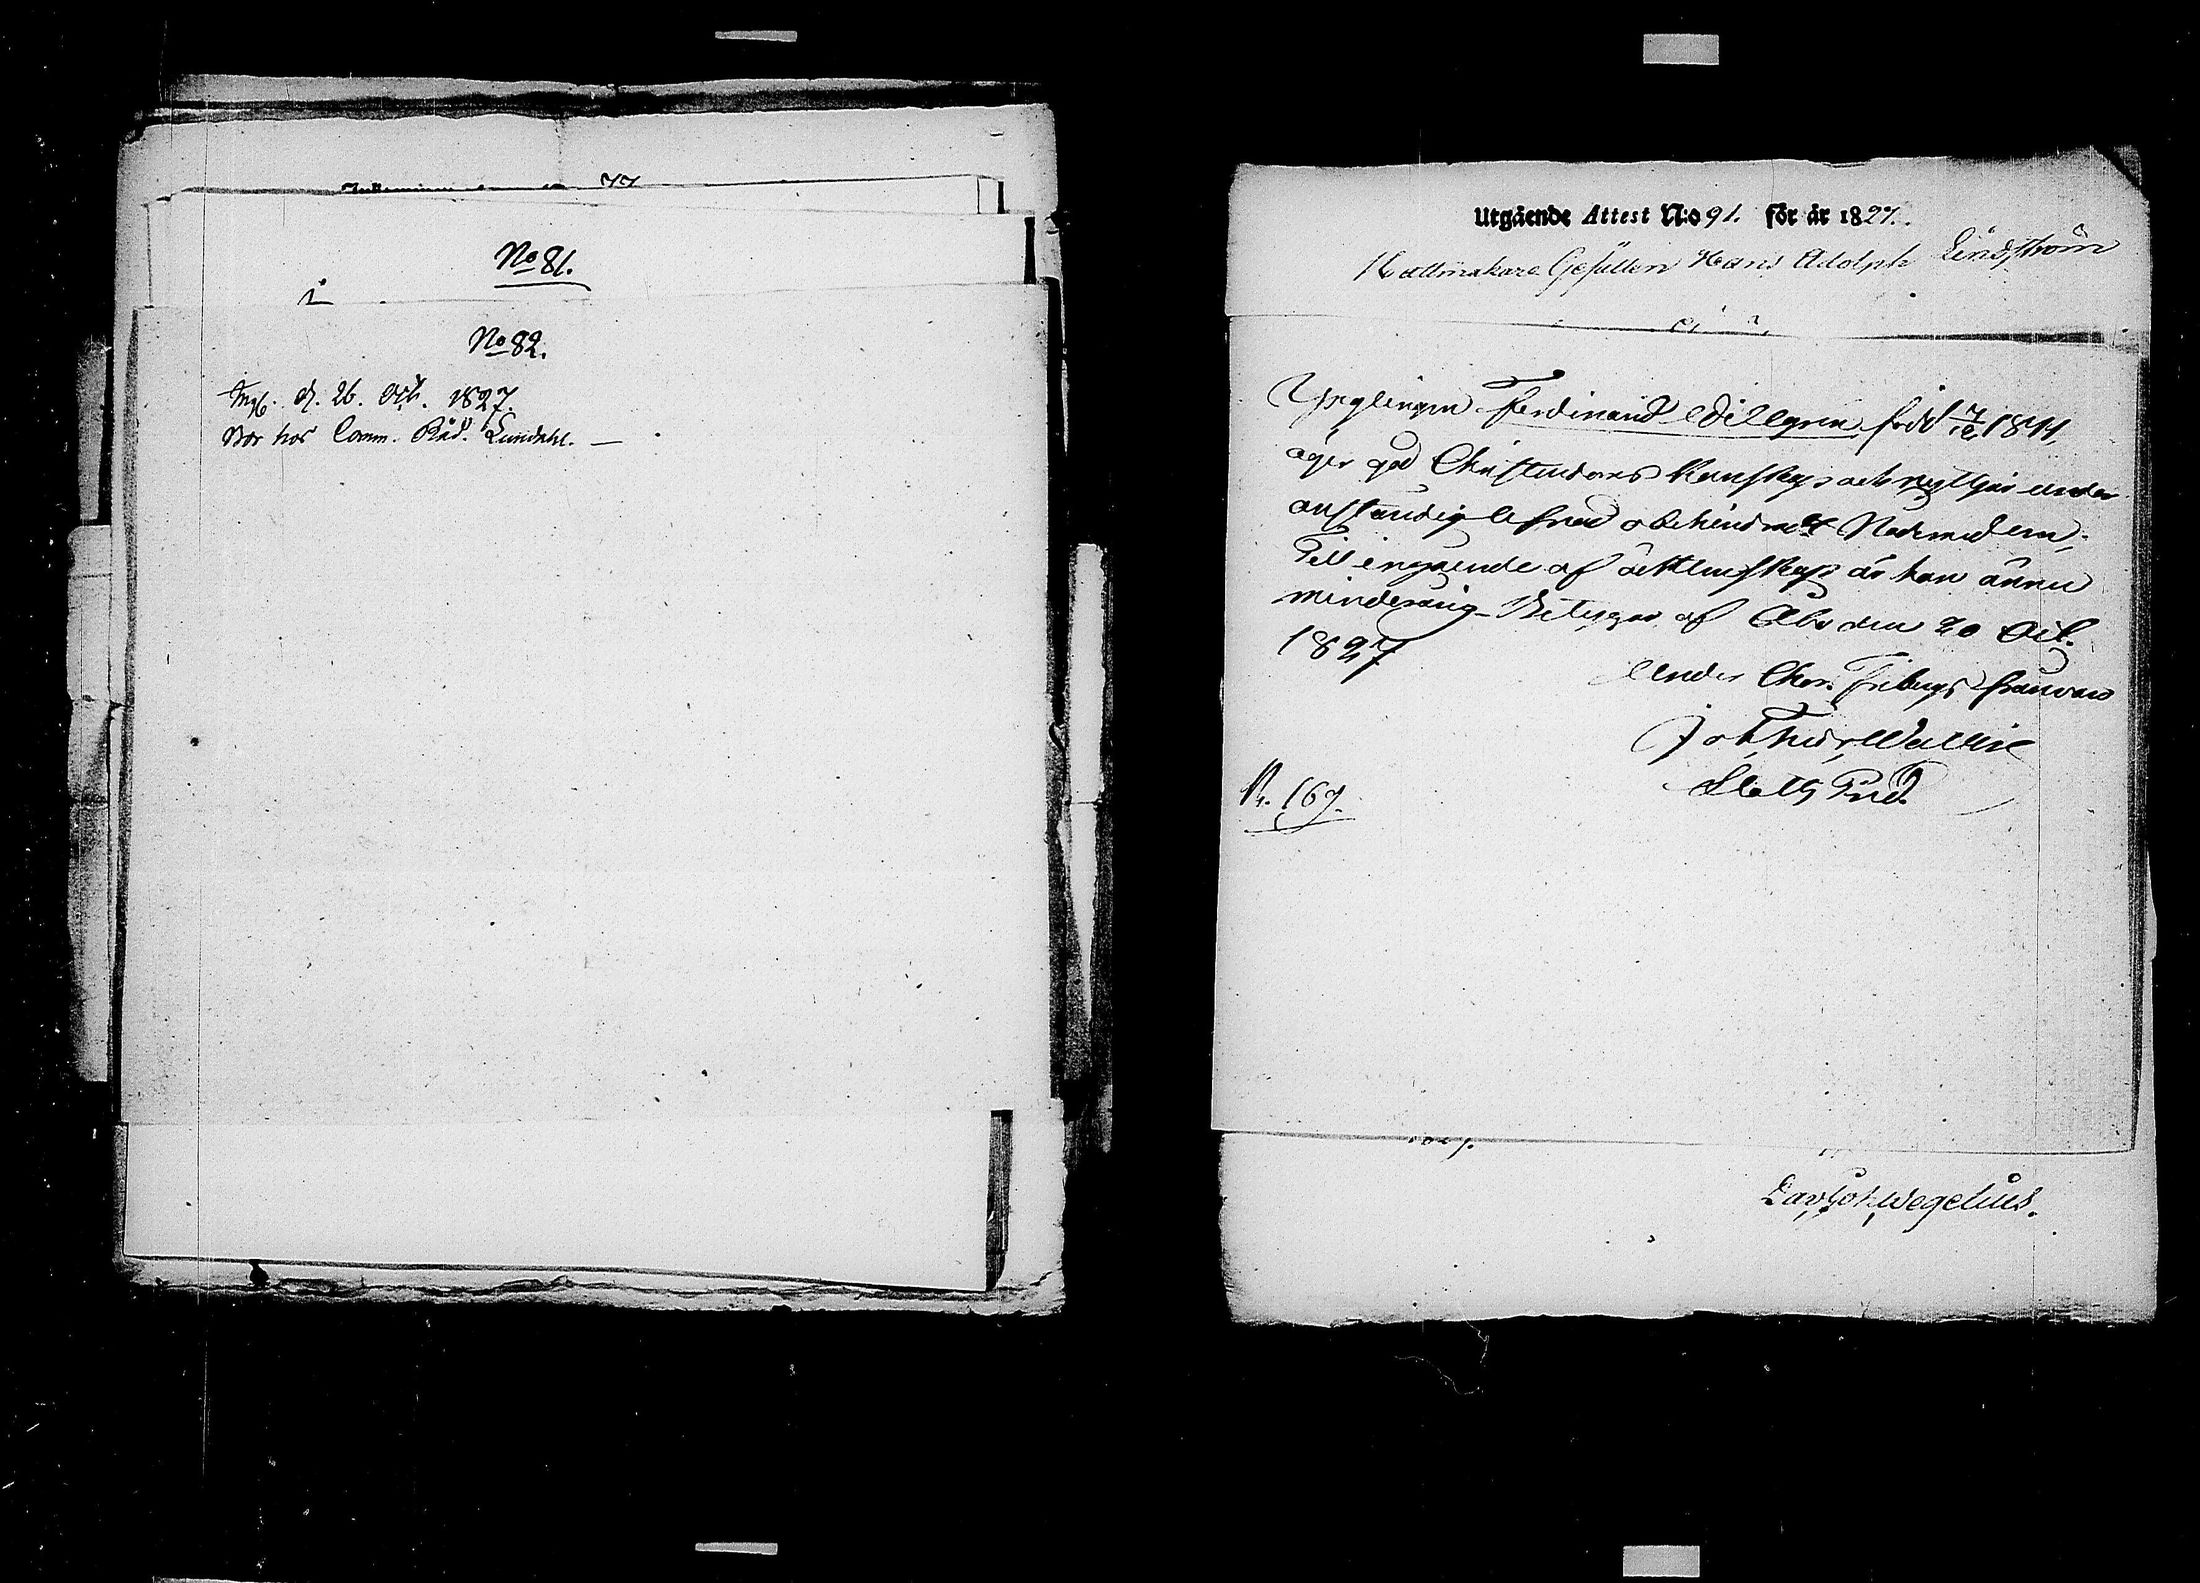 No 81.
No 82.
Ingf. d. 26. Oct. 1827.
Bor hos Comm. Råd. Lundahl.
Utgående Attest N:o 91. för år 1827.
Hattmakare Gesällen Hans Adolph Lindström
Ynglingen Ferdinand Dillgren född 1811,
äger god Christendoms Kunskap och nyttjar under
anständig lefnad obehindradt Nattvarden.
Till ingående af äktenskap är han ännu
minderårig. Betygar af Åbo den 20 Oct.
1827
under Chor. Fribergs frånvaro
Joh. Wallin
Slotts Pred.
N. 167.
Dav. Joh. Wegelius.